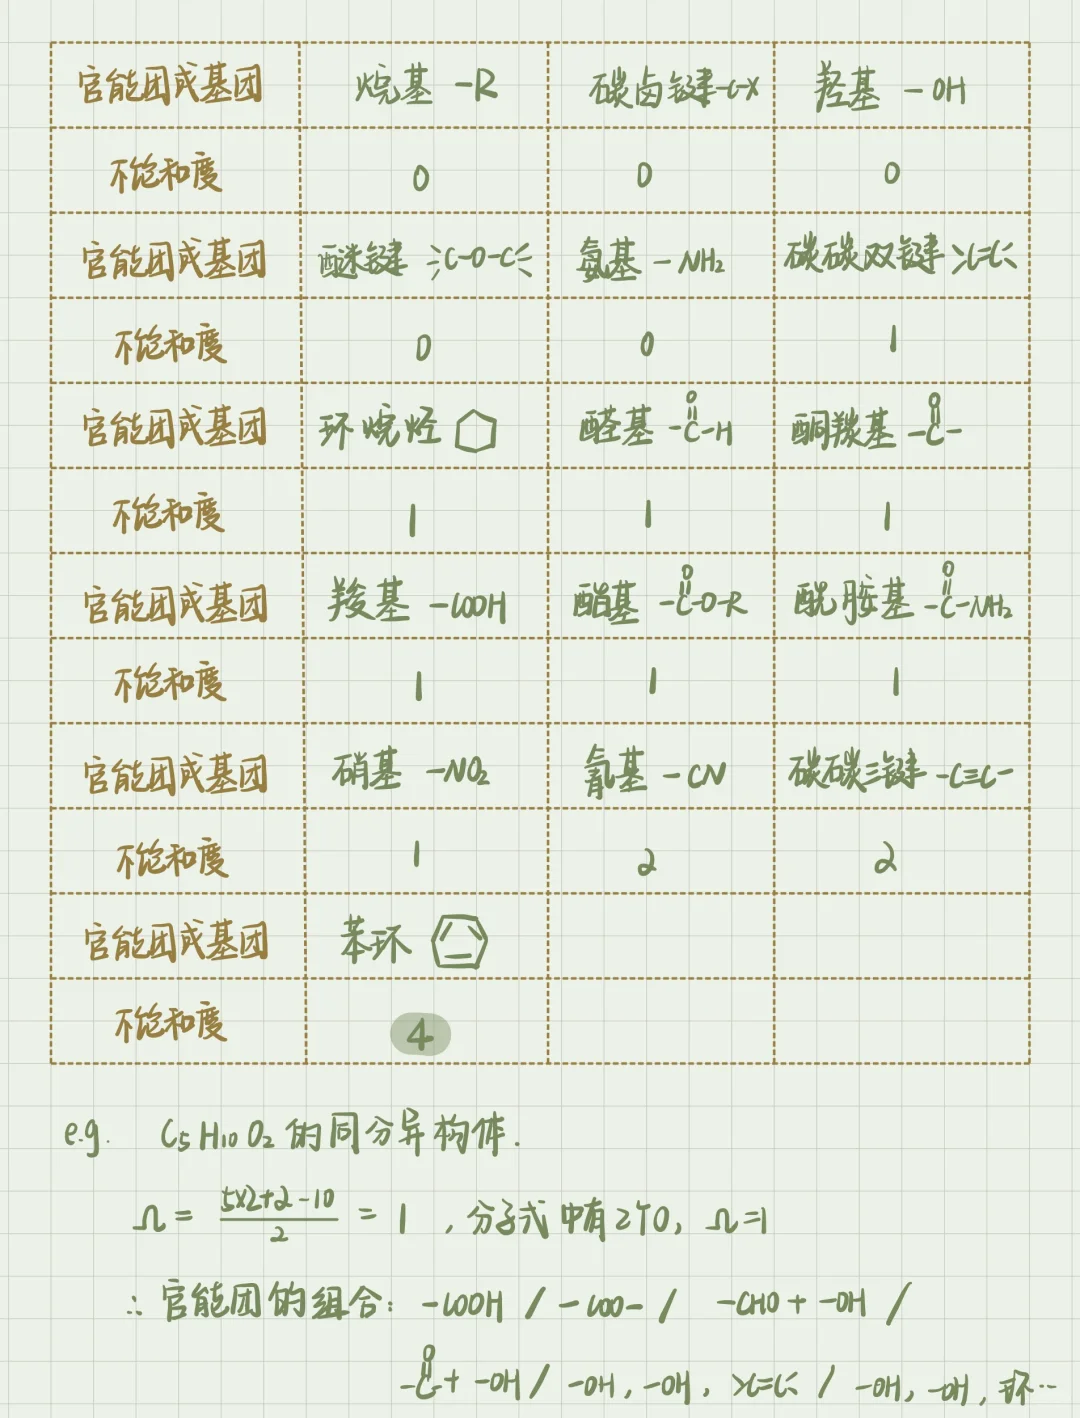 官能团或基团 烷基 -R 碳卤键-C-X 羟基 -OH
不饱和度 0 0 0
官能团或基团 醚键 >C-O-C< 氨基 -NH₂ 碳碳双键 >C=C<
不饱和度 0 0 1
官能团或基团 环烷烃 醛基 -C(=O)-H 酮羰基 -C(=O)-
不饱和度 1 1 1
官能团或基团 羧基 -COOH 酯基 -C(=O)-O-R 酰胺基 -C(=O)-NH₂
不饱和度 1 1 1
官能团或基团 硝基 -NO₂ 氰基 -CN 碳碳三键 -C≡C-
不饱和度 1 2 2
官能团或基团 苯环
不饱和度 4
e.g. C₅H₁₀O₂的同分异构体.
Ω = (5×2+2-10)/2 = 1 ,分子式中有2个O, Ω=1
∴ 官能团的组合: -COOH / -COO- / -CHO + -OH /
-C(=O)- + -OH / -OH, -OH, >C=C< / -OH, -OH, 环…